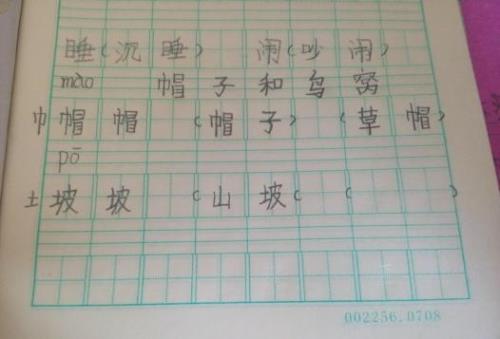 睡(沉睡) 闹(吵闹)
mào 帽子和鸟窝
巾帽帽 (帽子) (草帽)
pō
土坡坡 (山坡( ( )
002256.0708